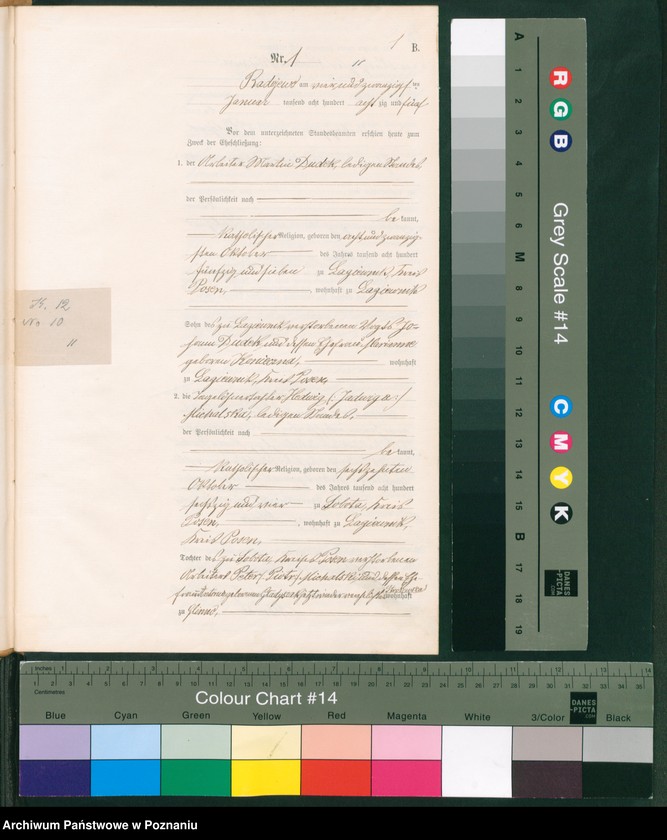 1 B.
Nr. 1
Radojewo am vier und zwanzigsten
Januar tausend acht hundert achtzig und fünf
Vor dem unterzeichneten Standesbeamten erschien heute zum
Zweck der Eheschließung:
1. der Arbeiter Martin Dudek, ledigen Standes
der Persönlichkeit nach
be kannt,
katholischer Religion, geboren den acht und zwanzig-
sten Oktober des Jahres tausend acht hundert
fünfzig und sieben zu Lagiewnik, Kreis
Posen, wohnhaft zu Lagiewnik
Sohn des zu Lagiewnik verstorbenen Vogts Jo-
hann Dudek und dessen Ehefrau Marianna
geborene wohnhaft
zu Lagiewnik, Kreis Posen
2. die Hedwig (Jadwiga)
Michalska, ledigen Standes.
der Persönlichkeit nach
be kannt,
katholischer Religion, geboren den sechszehnten
Oktober des Jahres tausend acht hundert
sechszig und vier zu Sobota, Kreis
Posen, wohnhaft zu Lagiewnik,
Kreis Posen
Tochter des zu Sobota, Kreises Posen verstorbenen
Arbeiters Peter, Piotr, Michalski, und dessen Ehe-
frau geborenen wohnhaft
zu
12
No 10
11
Grey Scale #14
R
G
B
C
M
Y
K
A 1 2 3 4 5 6 M 8 9 10 11 12 13 14 15 B 17 18 19
DANES
-PICTA
.COM
inches 1 2 3 4 5 6 7 8 9 10 11 12 13 14
1 2 3 4 5 6 7 8 9 10 11 12 13 14 15 16 17 18 19 20 21 22 23 24 25 26 27 28 29 30 31 32 33 34 35 36
Centimetres
Colour Chart #14
DANES
-PICTA
.COM
Blue Cyan Green Yellow Red Magenta White 3/Color Black
Archiwum Państwowe w Poznaniu